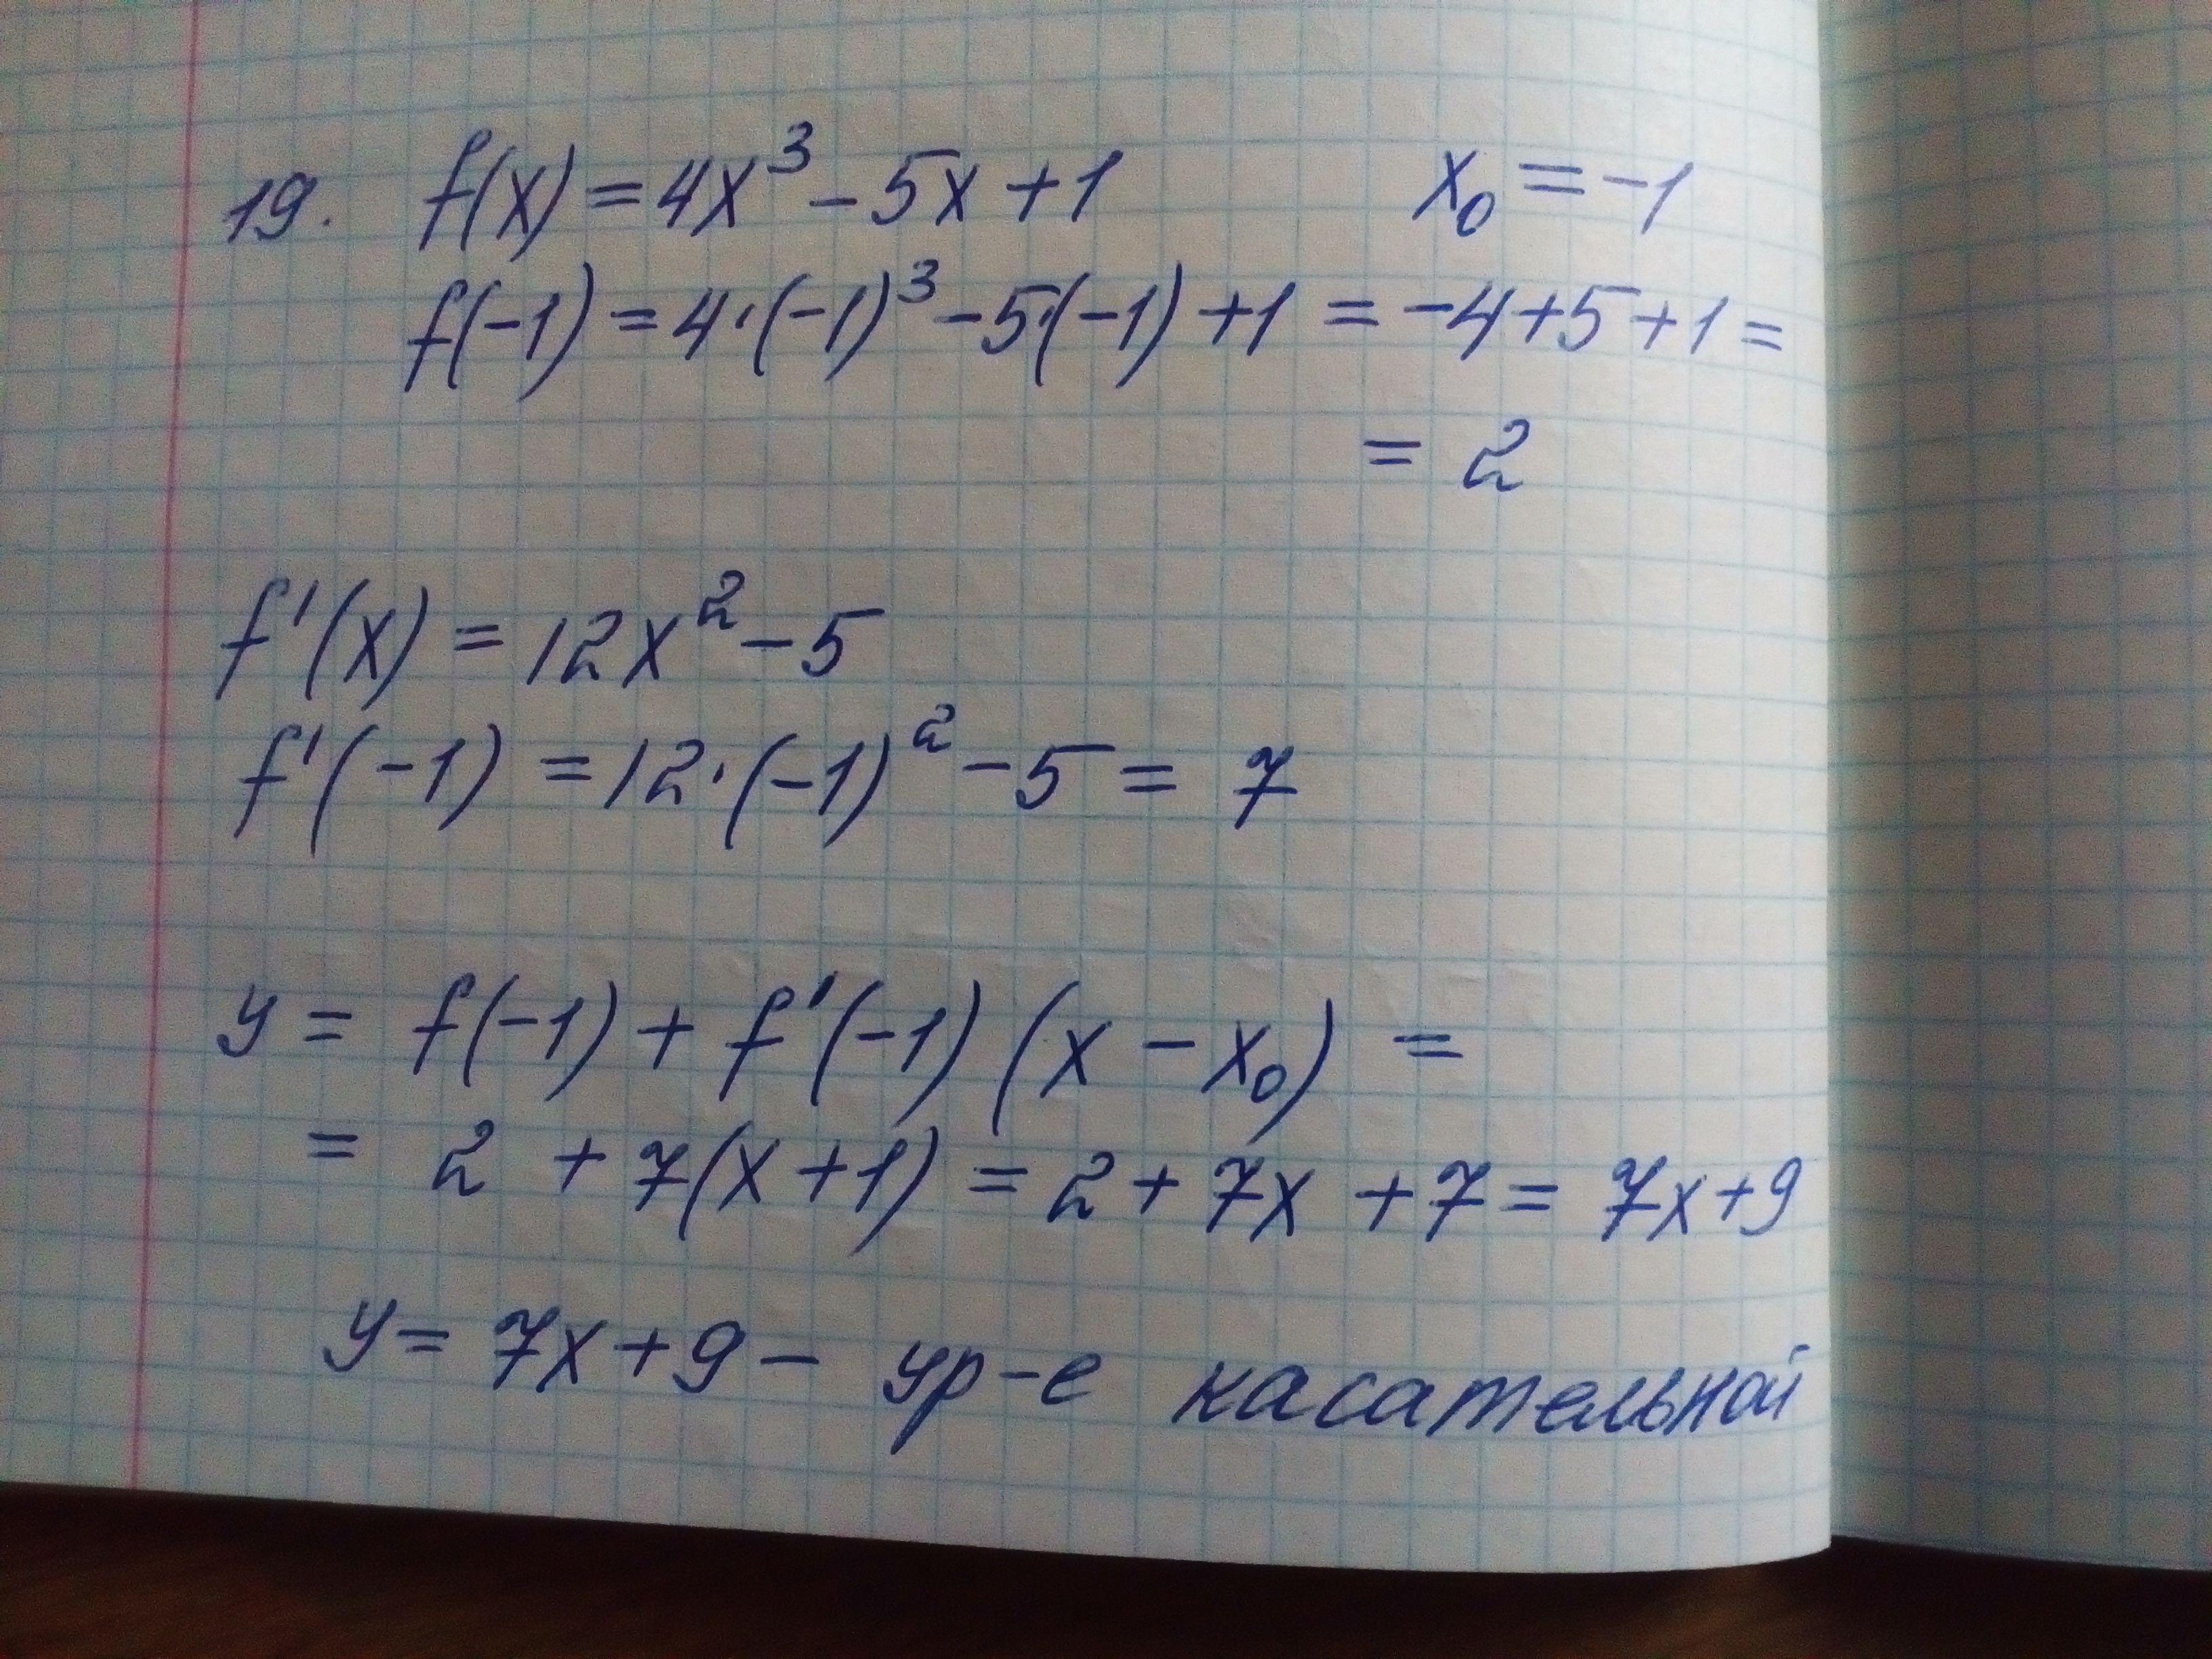 19. f(x) = 4x³ - 5x + 1 x₀ = -1
f(-1) = 4·(-1)³ - 5·(-1) + 1 = -4 + 5 + 1 =
= 2
f'(x) = 12x² - 5
f'(-1) = 12·(-1)² - 5 = 7
y = f(-1) + f'(-1) (x - x₀) =
= 2 + 7(x + 1) = 2 + 7x + 7 = 7x + 9
y = 7x + 9 - ур-е касательной